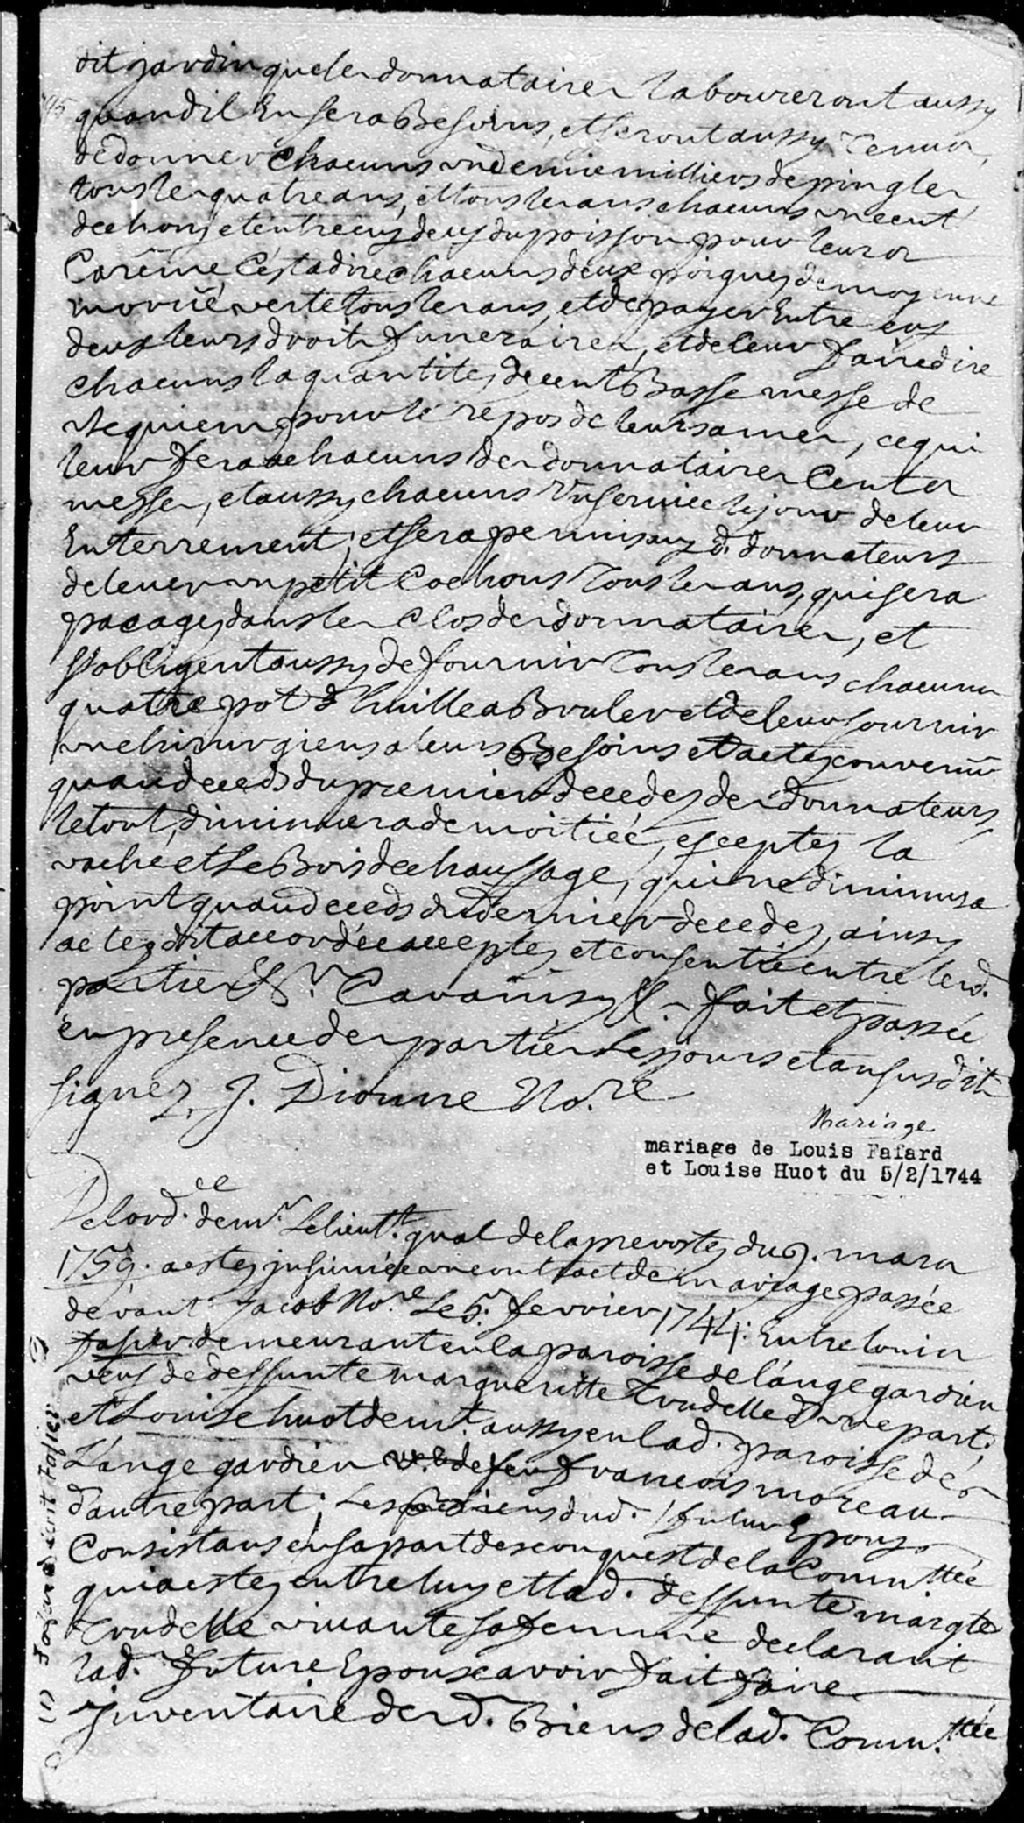 dit jardin que les donnataires laboureront aussy
quand il En sera Besoins, et seront aussy Tenus,
de donner Chacuns un demie milliers de pingles
tous les quatre ans, et tous les ans chacuns un cent
de chous et entre eux deux du poisson pour leurs
Carême, C'est a dire chacuns deux poignez de moyenne
moruë verte tous les ans, et de payer Entre eux
deux leurs droits funeraires, et de leur faire dire
chacuns la quantitez de cent Basse messe de
Requiem pour le repos de leurs ames, ce qui
leur fera a chacuns des donnataires Cents
messes, et aussy chacuns Un service le jour de leur
Enterrement, et sera permis aux d. donnateurs
delever un petit Cochons Tous les ans, qui sera
pacagez dans les Clos des donnataires, et
s'obligent aussy de fournir Tous les ans chacuns
quatre pot d'huille a Bruler et de leur fournir
un chirurgiens a leurs Besoins et a etez convenu
quau deceds du premier decedez des donnateurs
le tout diminuera de moitiée, exceptez la
vache et le Bois de chauffage, qui ne diminura
point quau deceds du dernier decedez, ainsy
a etez dit accordée acceptez et consentie entre les d.
parties &.r Car ainsy &. fait et passée
en presence des parties les jours et an susdit
signez, J. Dionne No.re
Mariage
mariage de Louis Fafard
et Louise Huot du 5/2/1744
De lord.ce de mr. Le lieut.t gnal de la prevostez du 9. mars
1759. a estez insinuée un contract de mariage passée
devant Jacob No.re Le 5.e fevrier 1744: Entre Louis
fafier demeurant en la paroisse de l'ange gardien
veuf de deffunte margueritte Trudelle d'une part.
et Louise huot demt. aussy en lad. paroisse de
L'ange gardien ve. de feu francois moreau
d'autre part; Les Biens dud. futur Epoux
Consistans en sa part des conquest de la Comm.ttée
qui a estez entre luy et lad. deffunte margte
Trudelle vivante sa femme declarant
lad. future Epouse avoir fait faire
Inventaire des d. Biens de lad. Comm.ttée